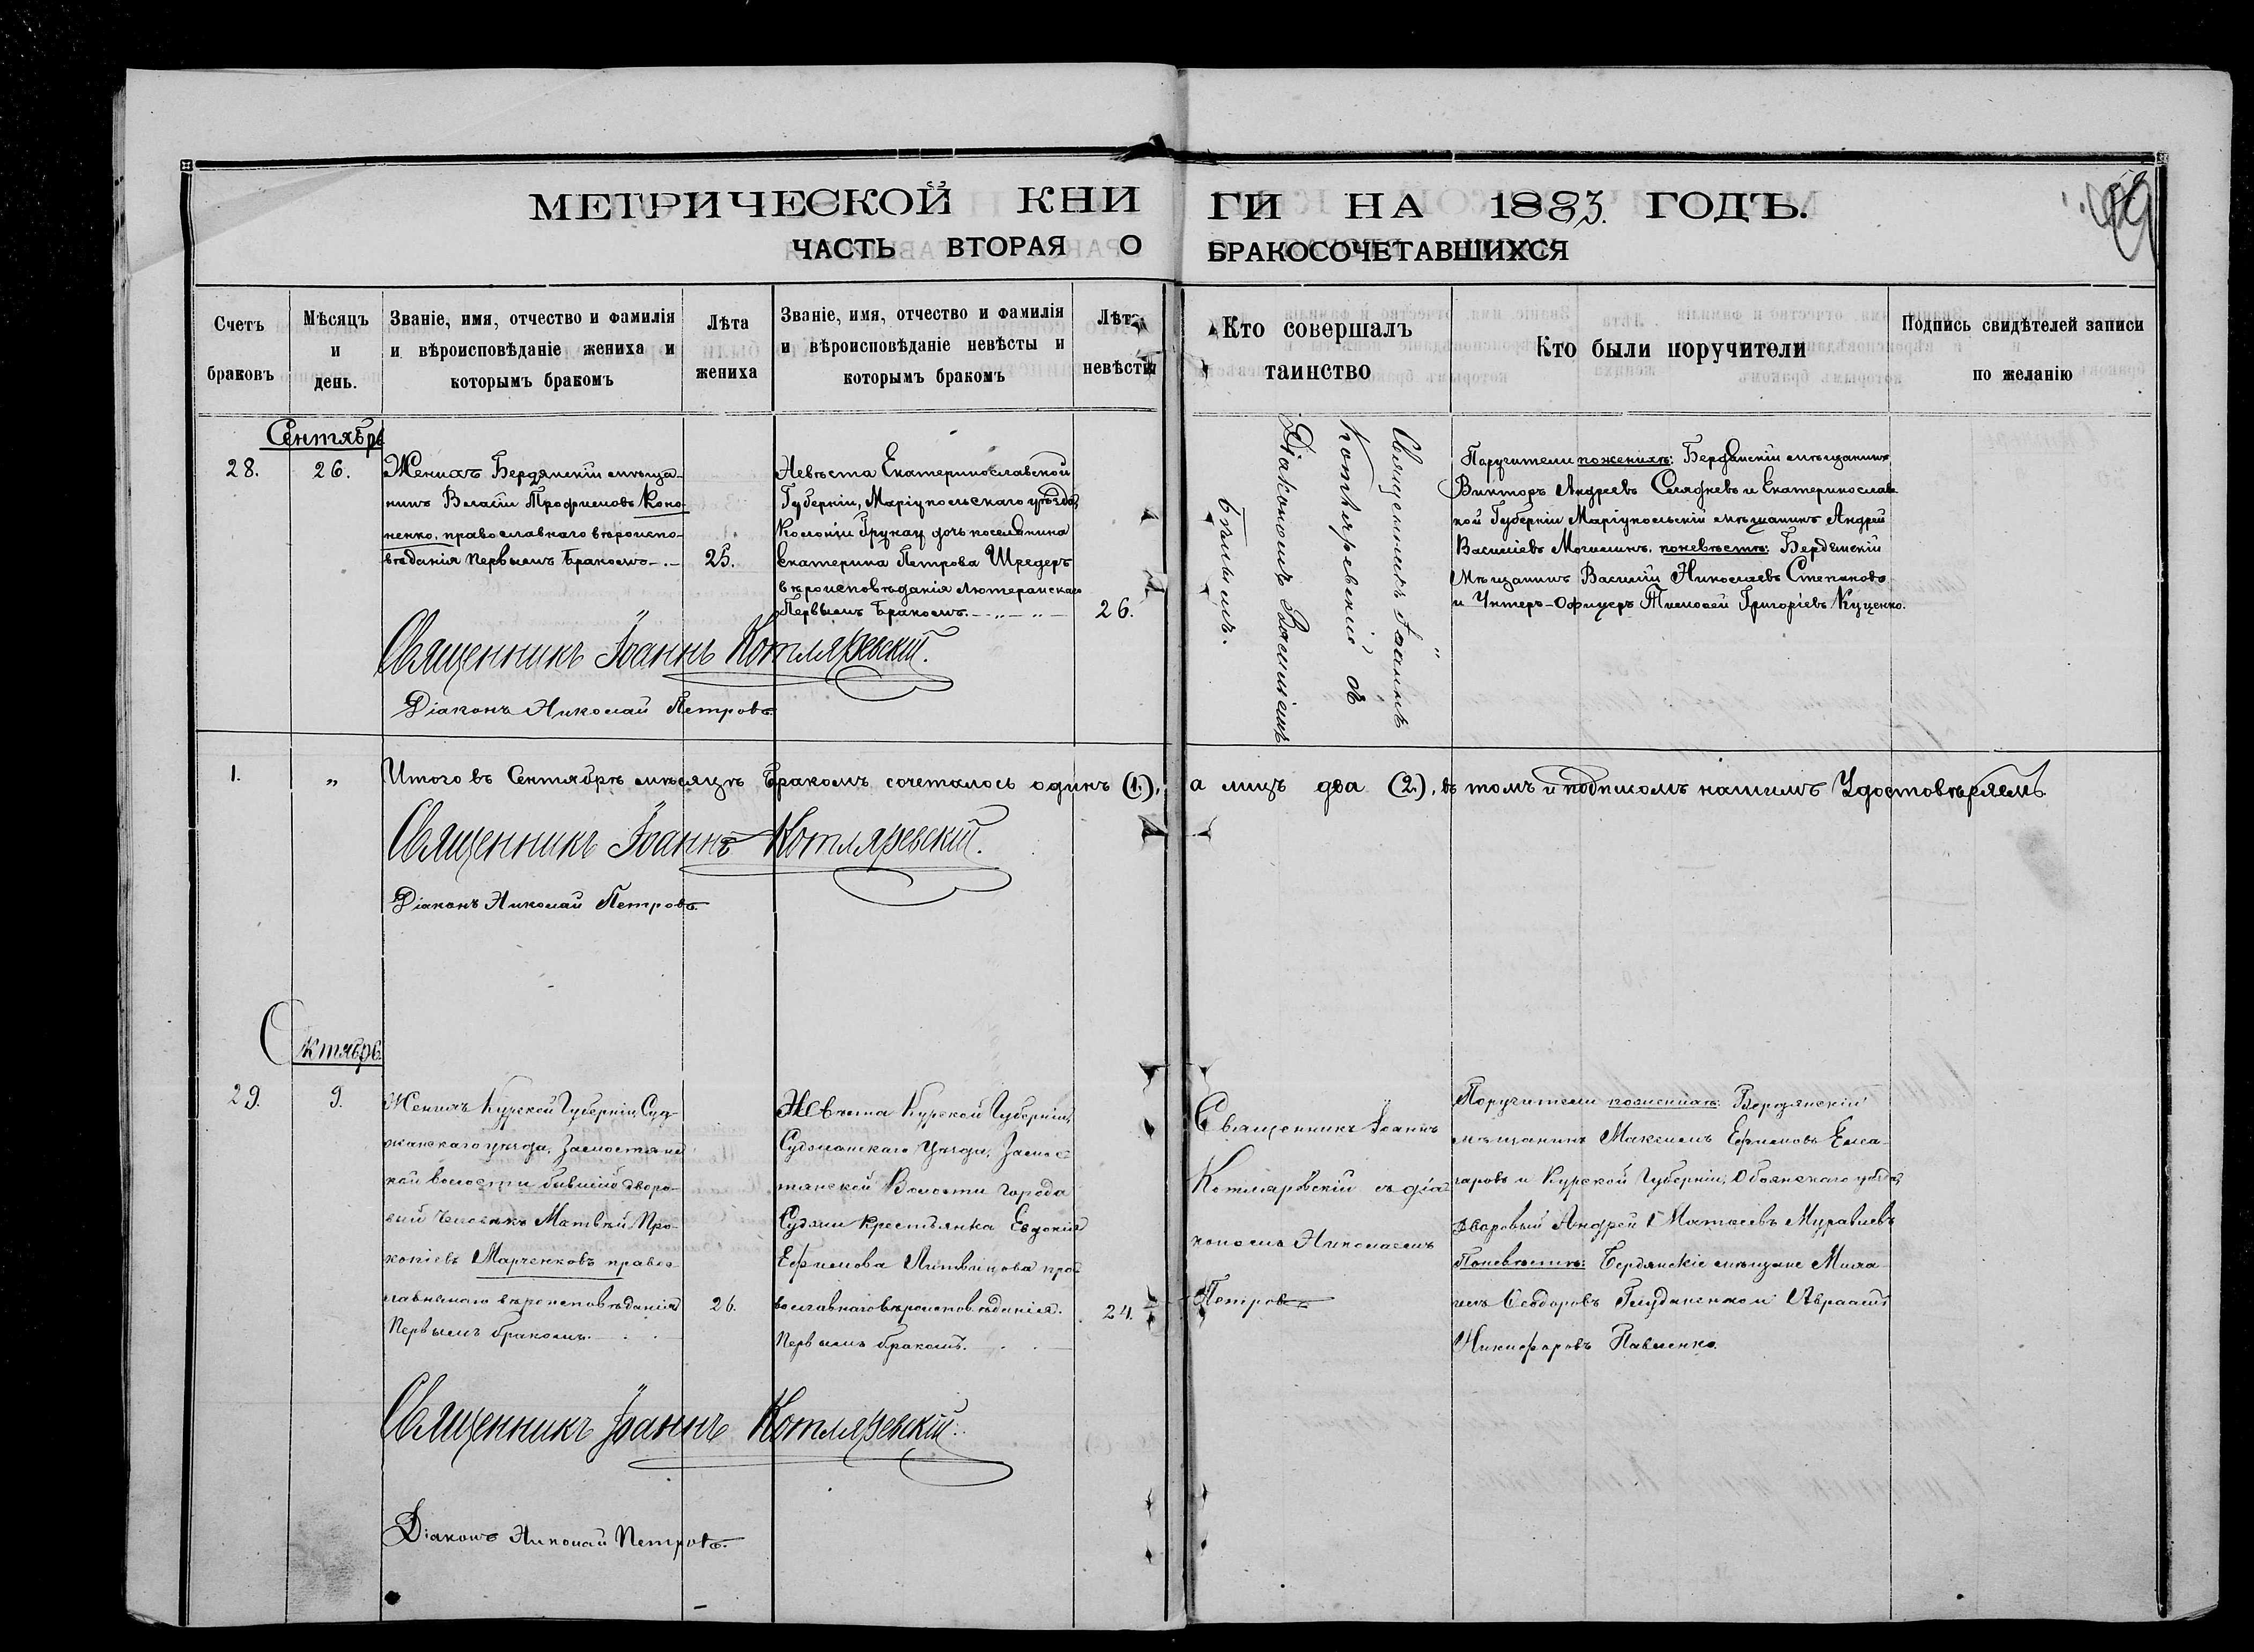 МЕТРИЧЕСКОЙ КНИ ГИ НА 1883. ГОДЪ.
ЧАСТЬ ВТОРАЯ О БРАКОСОЧЕТАВШИХСЯ
Счетъ
браковъ
Мѣсяцъ
и
день.
Званіе, имя, отчество и фамилія
и вѣроисповѣданіе жениха и
которымъ бракомъ
Лѣта
жениха
Званіе, имя, отчество и фамилія
и вѣроисповѣданіе невѣсты и
которымъ бракомъ
Лѣта
невѣсты
Кто совершалъ
таинство
Кто были поручители
Подпись свидѣтелей записи
по желанію
Сентябрь
28.
26.
Женихъ Бердянскій мѣща-
нинъ Власій Трофимовъ Коно-
ненко, православнаго вѣроиспо-
вѣданія первымъ бракомъ
25.
Невѣста Екатеринославской
Губерніи, Маріупольскаго уѣзда,
Колоніи Грунау дочь поселянина
Екатерина Петрова Шредеръ
вѣроисповѣданія лютеранскаго
Первымъ бракомъ.
26.
Священникъ Іоаннъ
Котляревскій съ
Діакономъ Василіемъ
Бѣлымъ.
Поручители по женихѣ: Бердянскій мѣщанинъ
Викторъ Андреевъ и Екатеринослав
кой Губерніи Маріупольскій мѣщанинъ Андрей
Василіевъ Могилинъ, по невѣстѣ: Бердянскій
Мѣщанинъ Василій Николаевъ Степановъ
и Унтеръ-Офицеръ Тимофей Григоріевъ Куценко.
Священникъ Іоаннъ Котляревскій.
Діаконъ Николай Петровъ.
1.
„
Итого въ Сентябрѣ мѣсяцѣ бракомъ сочеталось одинъ (1.), а лицъ два (2.), въ томъ и подписомъ нашимъ Удостовѣряемъ
Священникъ Іоаннъ Котляревскій.
Діаконъ Николай Петровъ.
Октябрь.
29.
9.
Женихъ Курской Губерніи, Суд-
жанскаго уѣзда, Замостянс
кой волости бывшій дворо-
вый человѣкъ Матвѣй Про-
копіевъ Марченковъ право-
славнаго вѣроисповѣданія
Первымъ бракомъ.
26.
Невѣста Курской Губерніи,
Суджанскаго Уѣзда, Замос
тянской Волости города
Суджи крестьянка Евдокія
Ефимова Литвинова пра-
вославнаго вѣроисповѣданія.
Первымъ бракомъ.
24.
Священникъ Іоаннъ
Котляревскій съ діа
кономъ Николаемъ
Петровъ
Поручители по женихѣ: Бердянскій
мѣщанинъ Максимъ Ефимовъ
и Курской Губерніи, Обоянскаго уѣзда,
дворовый Андрей Матвеевъ Муравлевъ
По невѣстѣ: Бердянскіе мѣщане Миха
илъ Ѳеодоровъ и Авраамъ
Никифоровъ Павленко.
Священникъ Іоаннъ Котляревскій.
Діаконъ Николай Петровъ.